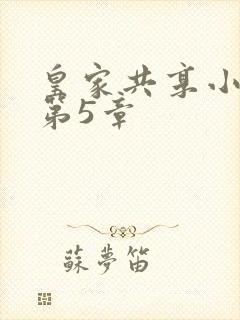 皇家共享小
第5章
蘇夢笛